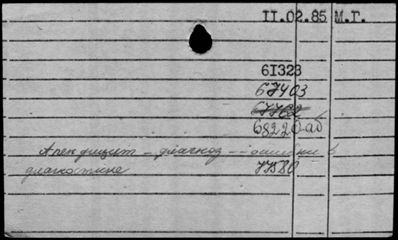 II.02.85 М.Г.
6I323
67403
67762
68220 аб
Аппендицит – диагноз – ошибки в
диагностике 77580